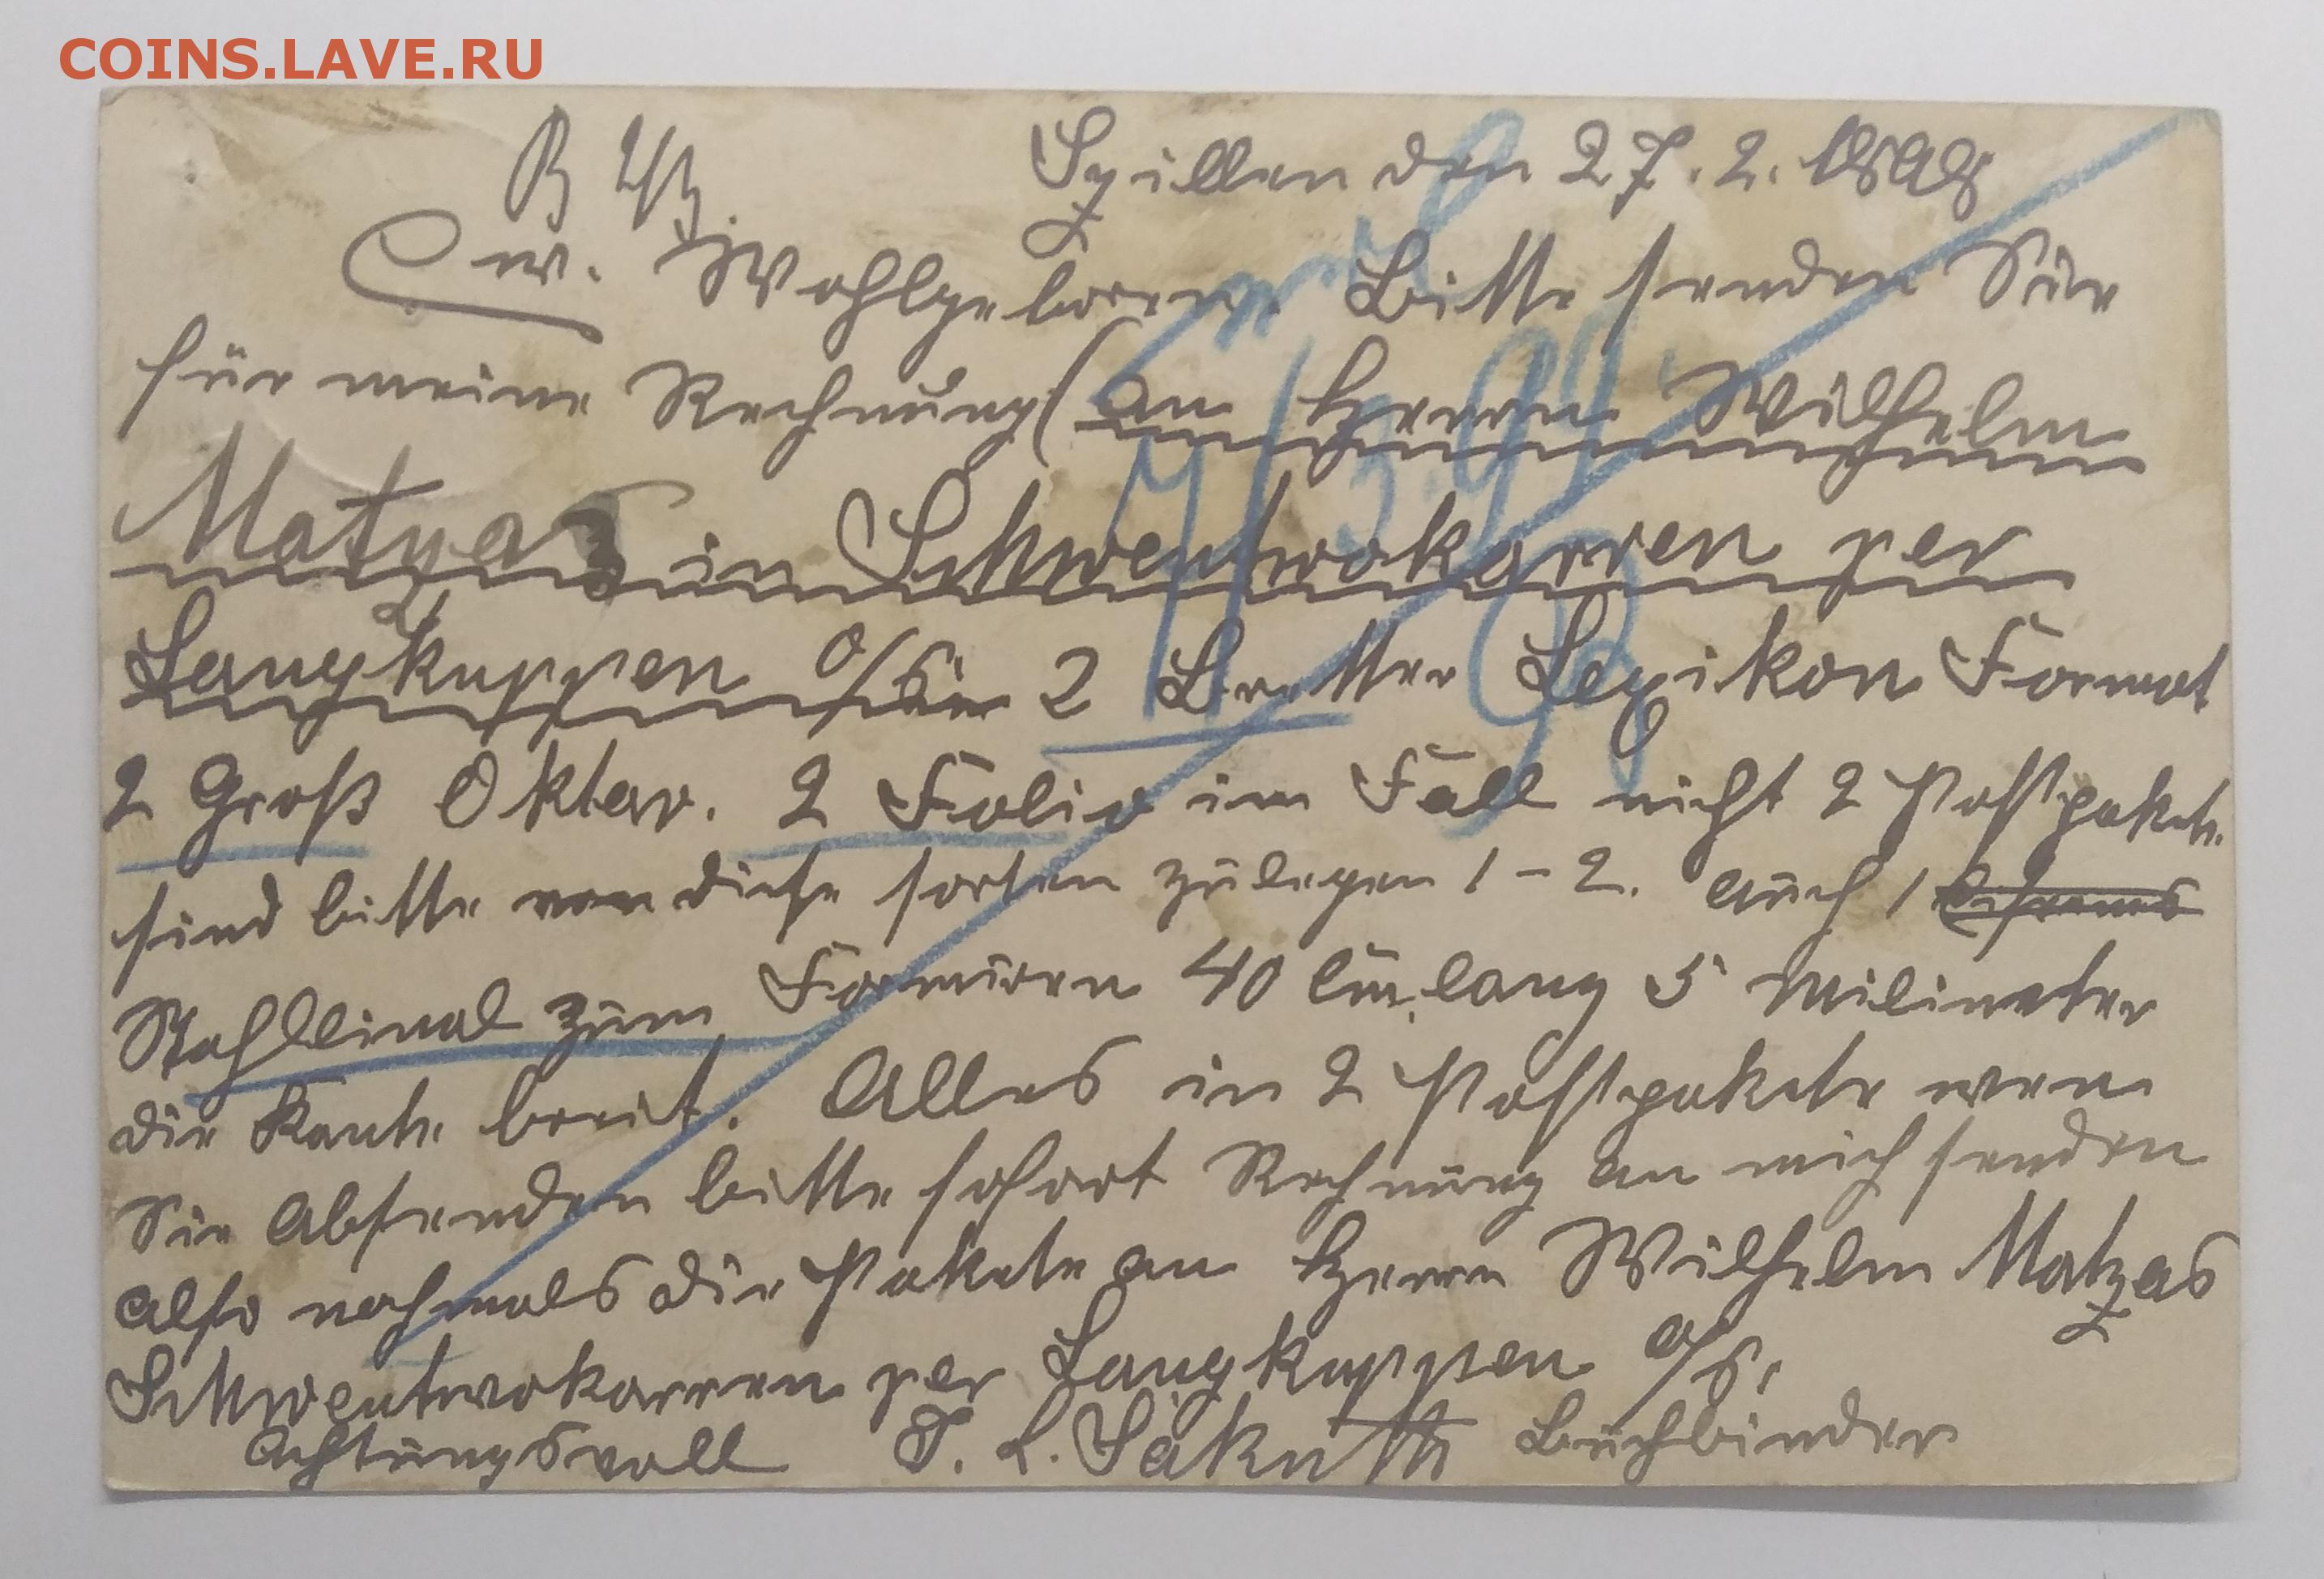 COINS.LAVE.RU
Szillen den 27. 2. 1898
Ew. Wohlgeboren. Bitte senden Sie
für meine Rechnung (an Herrn Wilhelm
Matzas in Schwentwokarren per
Langkuppen O/ 2 Bretter Lexikon Format
2 Groß Oktav. 2 Folio im Fall nicht 2 Postpakete
sind bitte von diese sorten zulegen 1-2. auch 1
Stahllinal zum 40 Cm. lang 5 Milimeter
die Kante breit. Alles in 2 Postpakete wen
Sie Absenden bitte sofort Rechnung an mich senden
also nochmals die Pakete an Herrn Wilhelm Matzas
Schwentwokarren per Langkuppen
Achtungsvoll Buchbinder